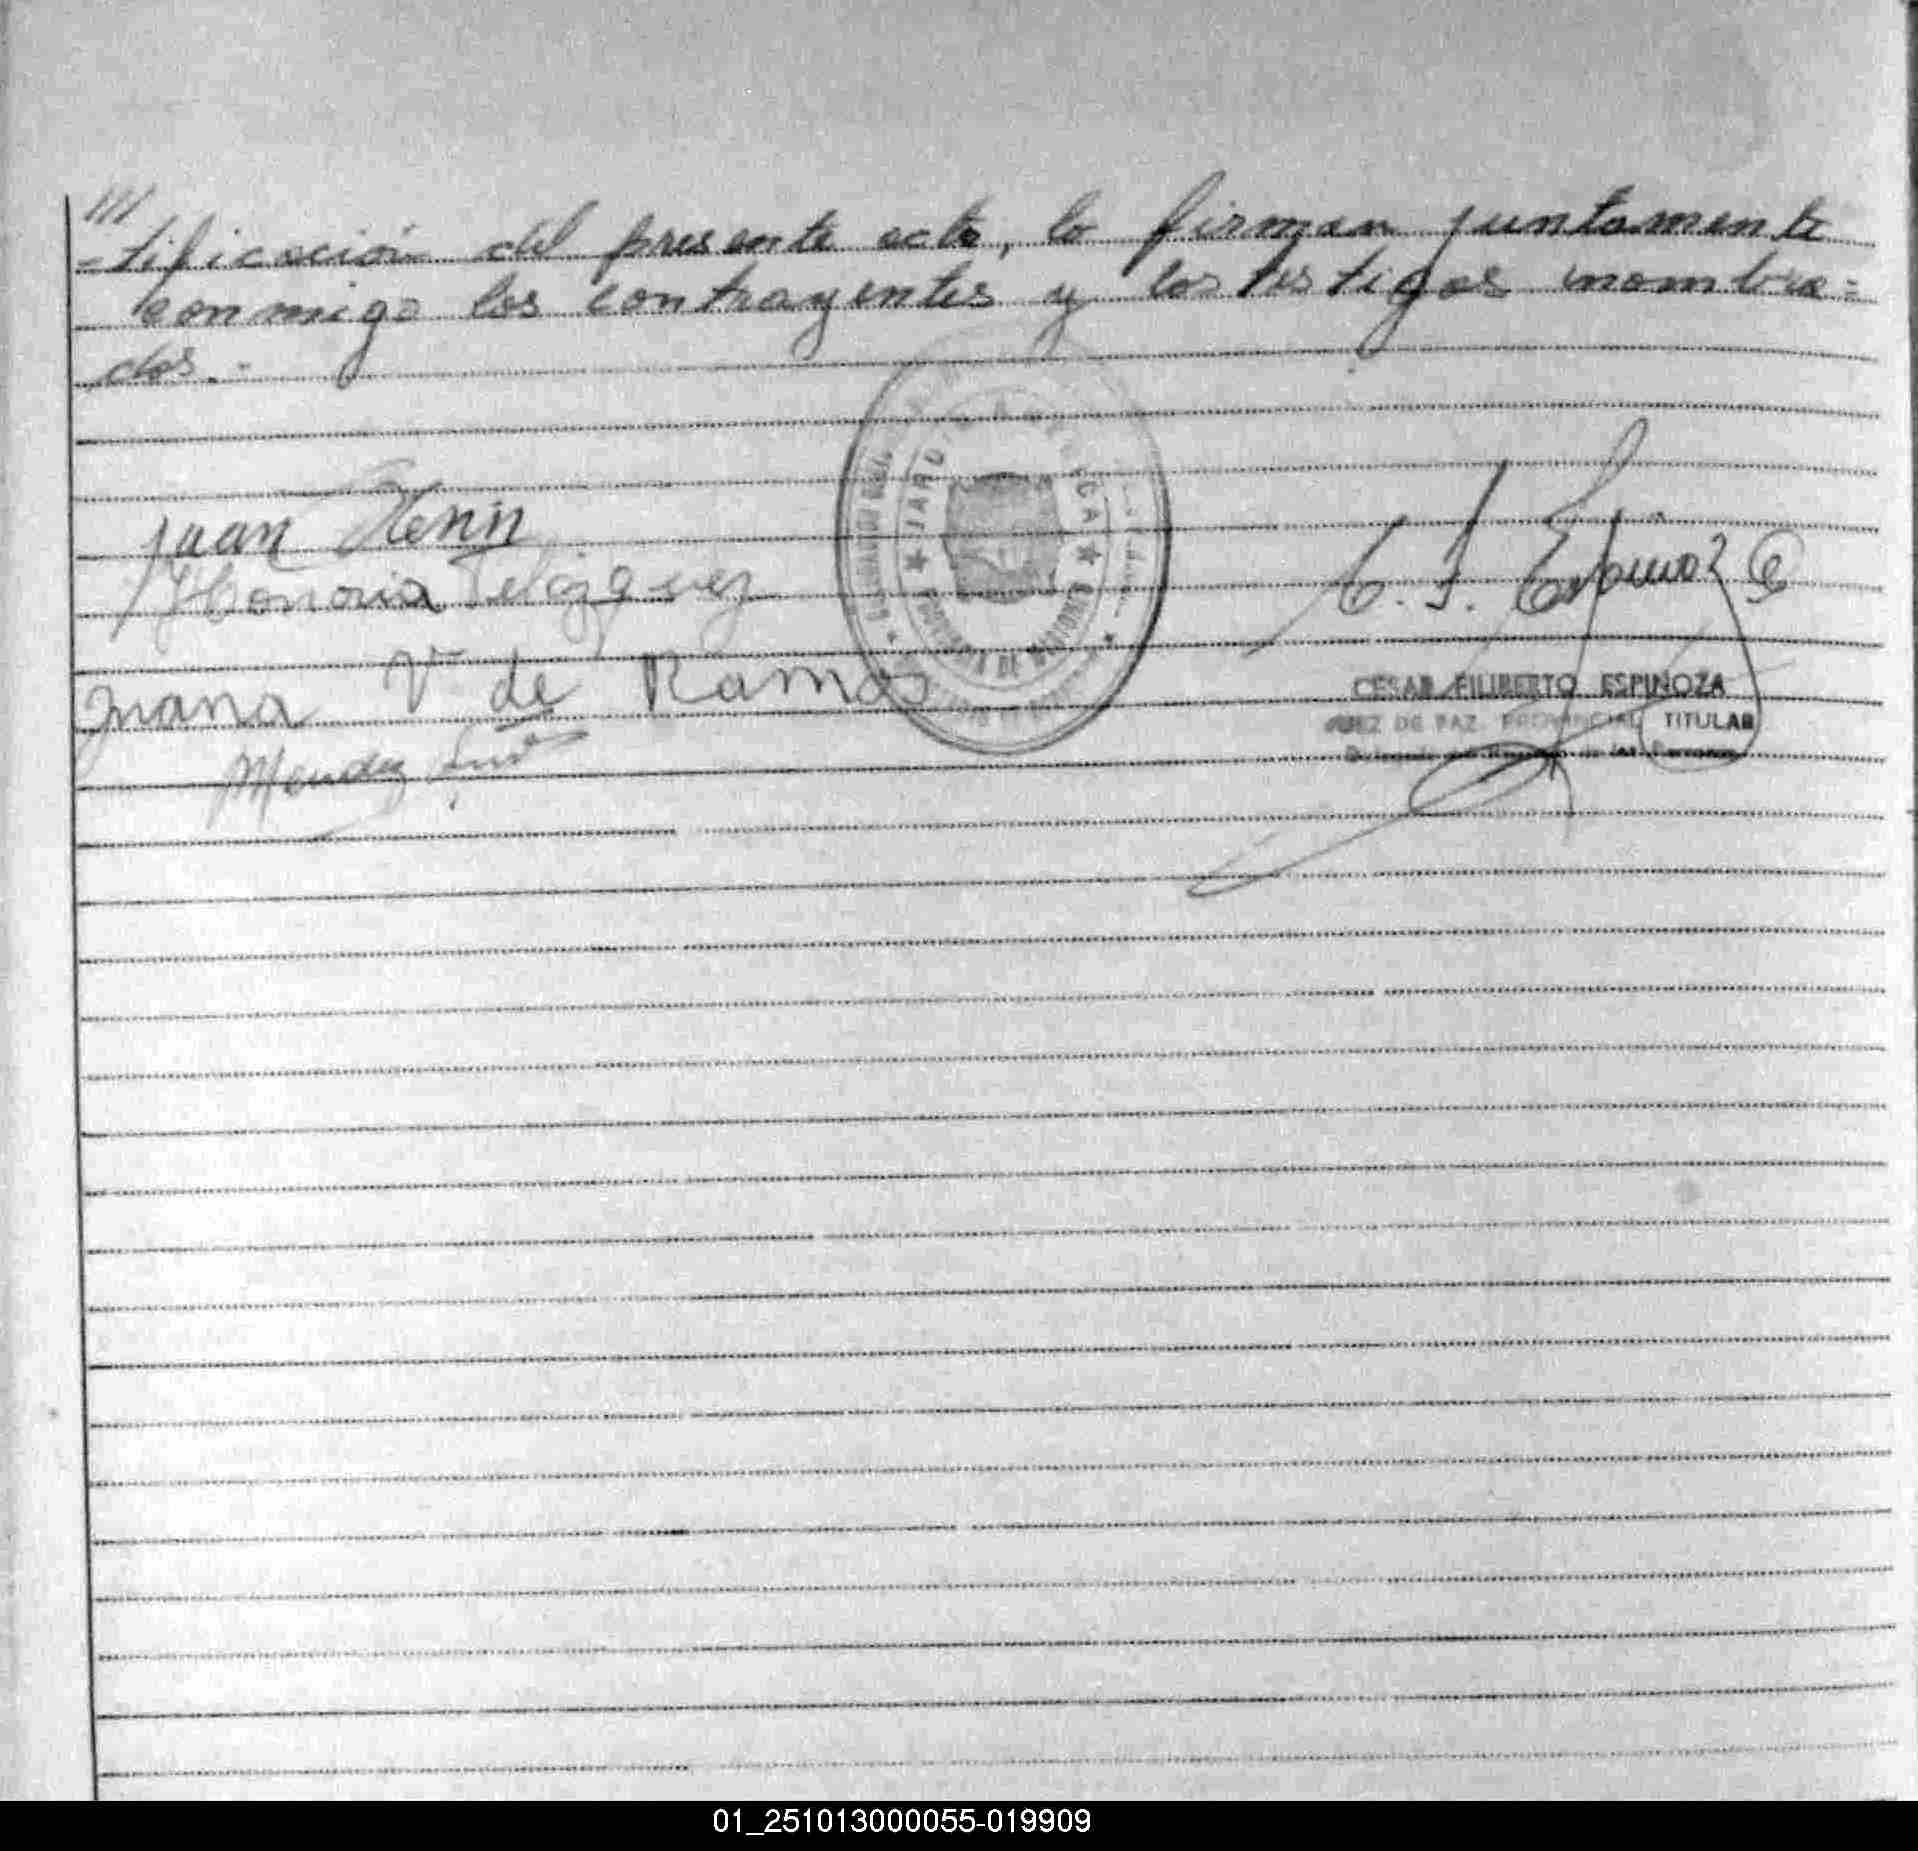 ///
-tificación del presente acto, lo firman juntamente
conmigo los contrayentes y los testigos nombra=
dos.-
Juan
Honoria Velazquez
Juana V. de Ramos
Mendez
C. F. Espinoza
CESAR FILIBERTO ESPINOZA
JUEZ DE PAZ PROVINCIAL TITULAR
Delegado del Registro de las Personas
01_251013000055-019909